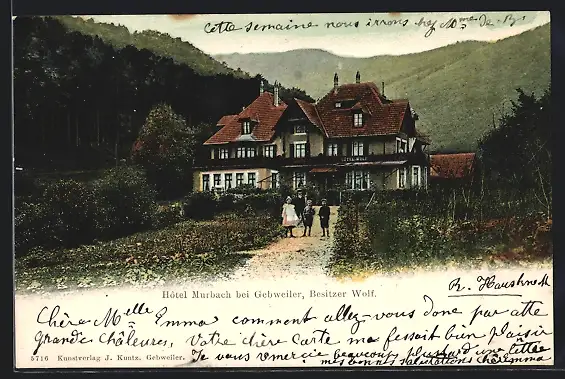 Cette semaine nous irons chez Mme De. B.
Hôtel Murbach bei Gebweiler, Besitzer Wolf.
R. Haushnett
Chère Melle Emma comment allez-vous donc par atte
grande châleures, Votre chère Carte ma fessait bien plaisir
5716 Kunstverlag J. Kuntz, Gebweiler.
Je vous remercie beaucoup d'une
mes bonnes salutations